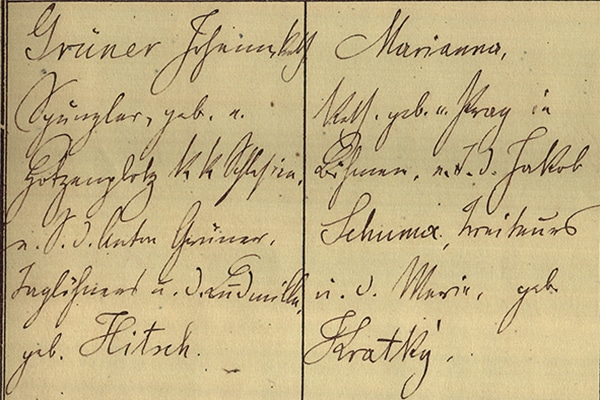 Grüner Johann, kath
Spängler, geb. v.
Hotzenplotz k k Schlesien,
u. S. d. Anton Grüner,
Taglöhners u. d. Ludmilla,
geb. Hitsch.
Marianna,
kath. geb. v. Prag in
Böhmen, u. T. d. Jakob
Schuma, Traiteurs
u. d. Marie, geb.
Kratky.